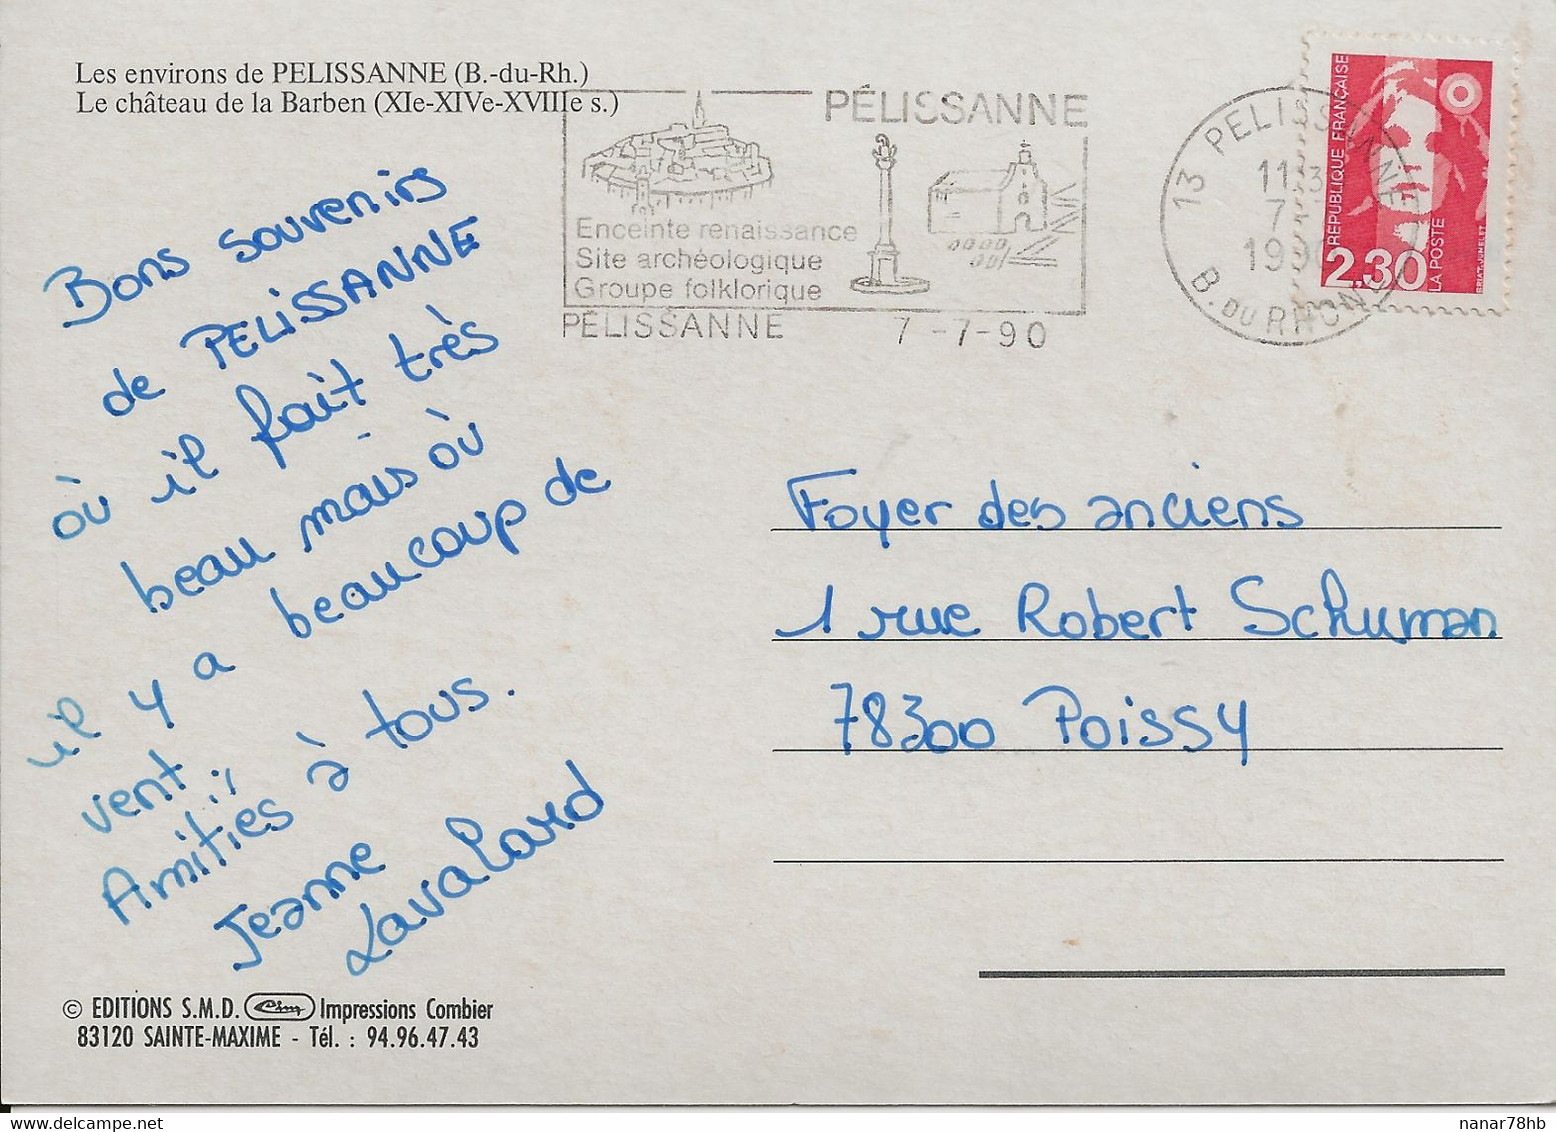 Les environs de PELISSANNE (B.-du-Rh.)
Le château de la Barben (XIe-XIVe-XVIIIe s.)
PÉLISSANNE
Enceinte renaissance
Site archéologique
Groupe folklorique
PÉLISSANNE 7-7-90
13 PELISSANNE
7
B. DU RHONE
REPUBLIQUE FRANÇAISE
2.30
LA POSTE
BRIAT-JUMELET
Bons souvenirs
de PELISSANNE
où il fait très
beau mais où
il y a beaucoup de
vent.
Amitiés à tous.
Jeanne
Lavalard
Foyer des anciens
1 rue Robert Schuman
78300 Poissy
© EDITIONS S.M.D. Cim Impressions Combier
83120 SAINTE-MAXIME - Tél. : 94.96.47.43
nanar78hb